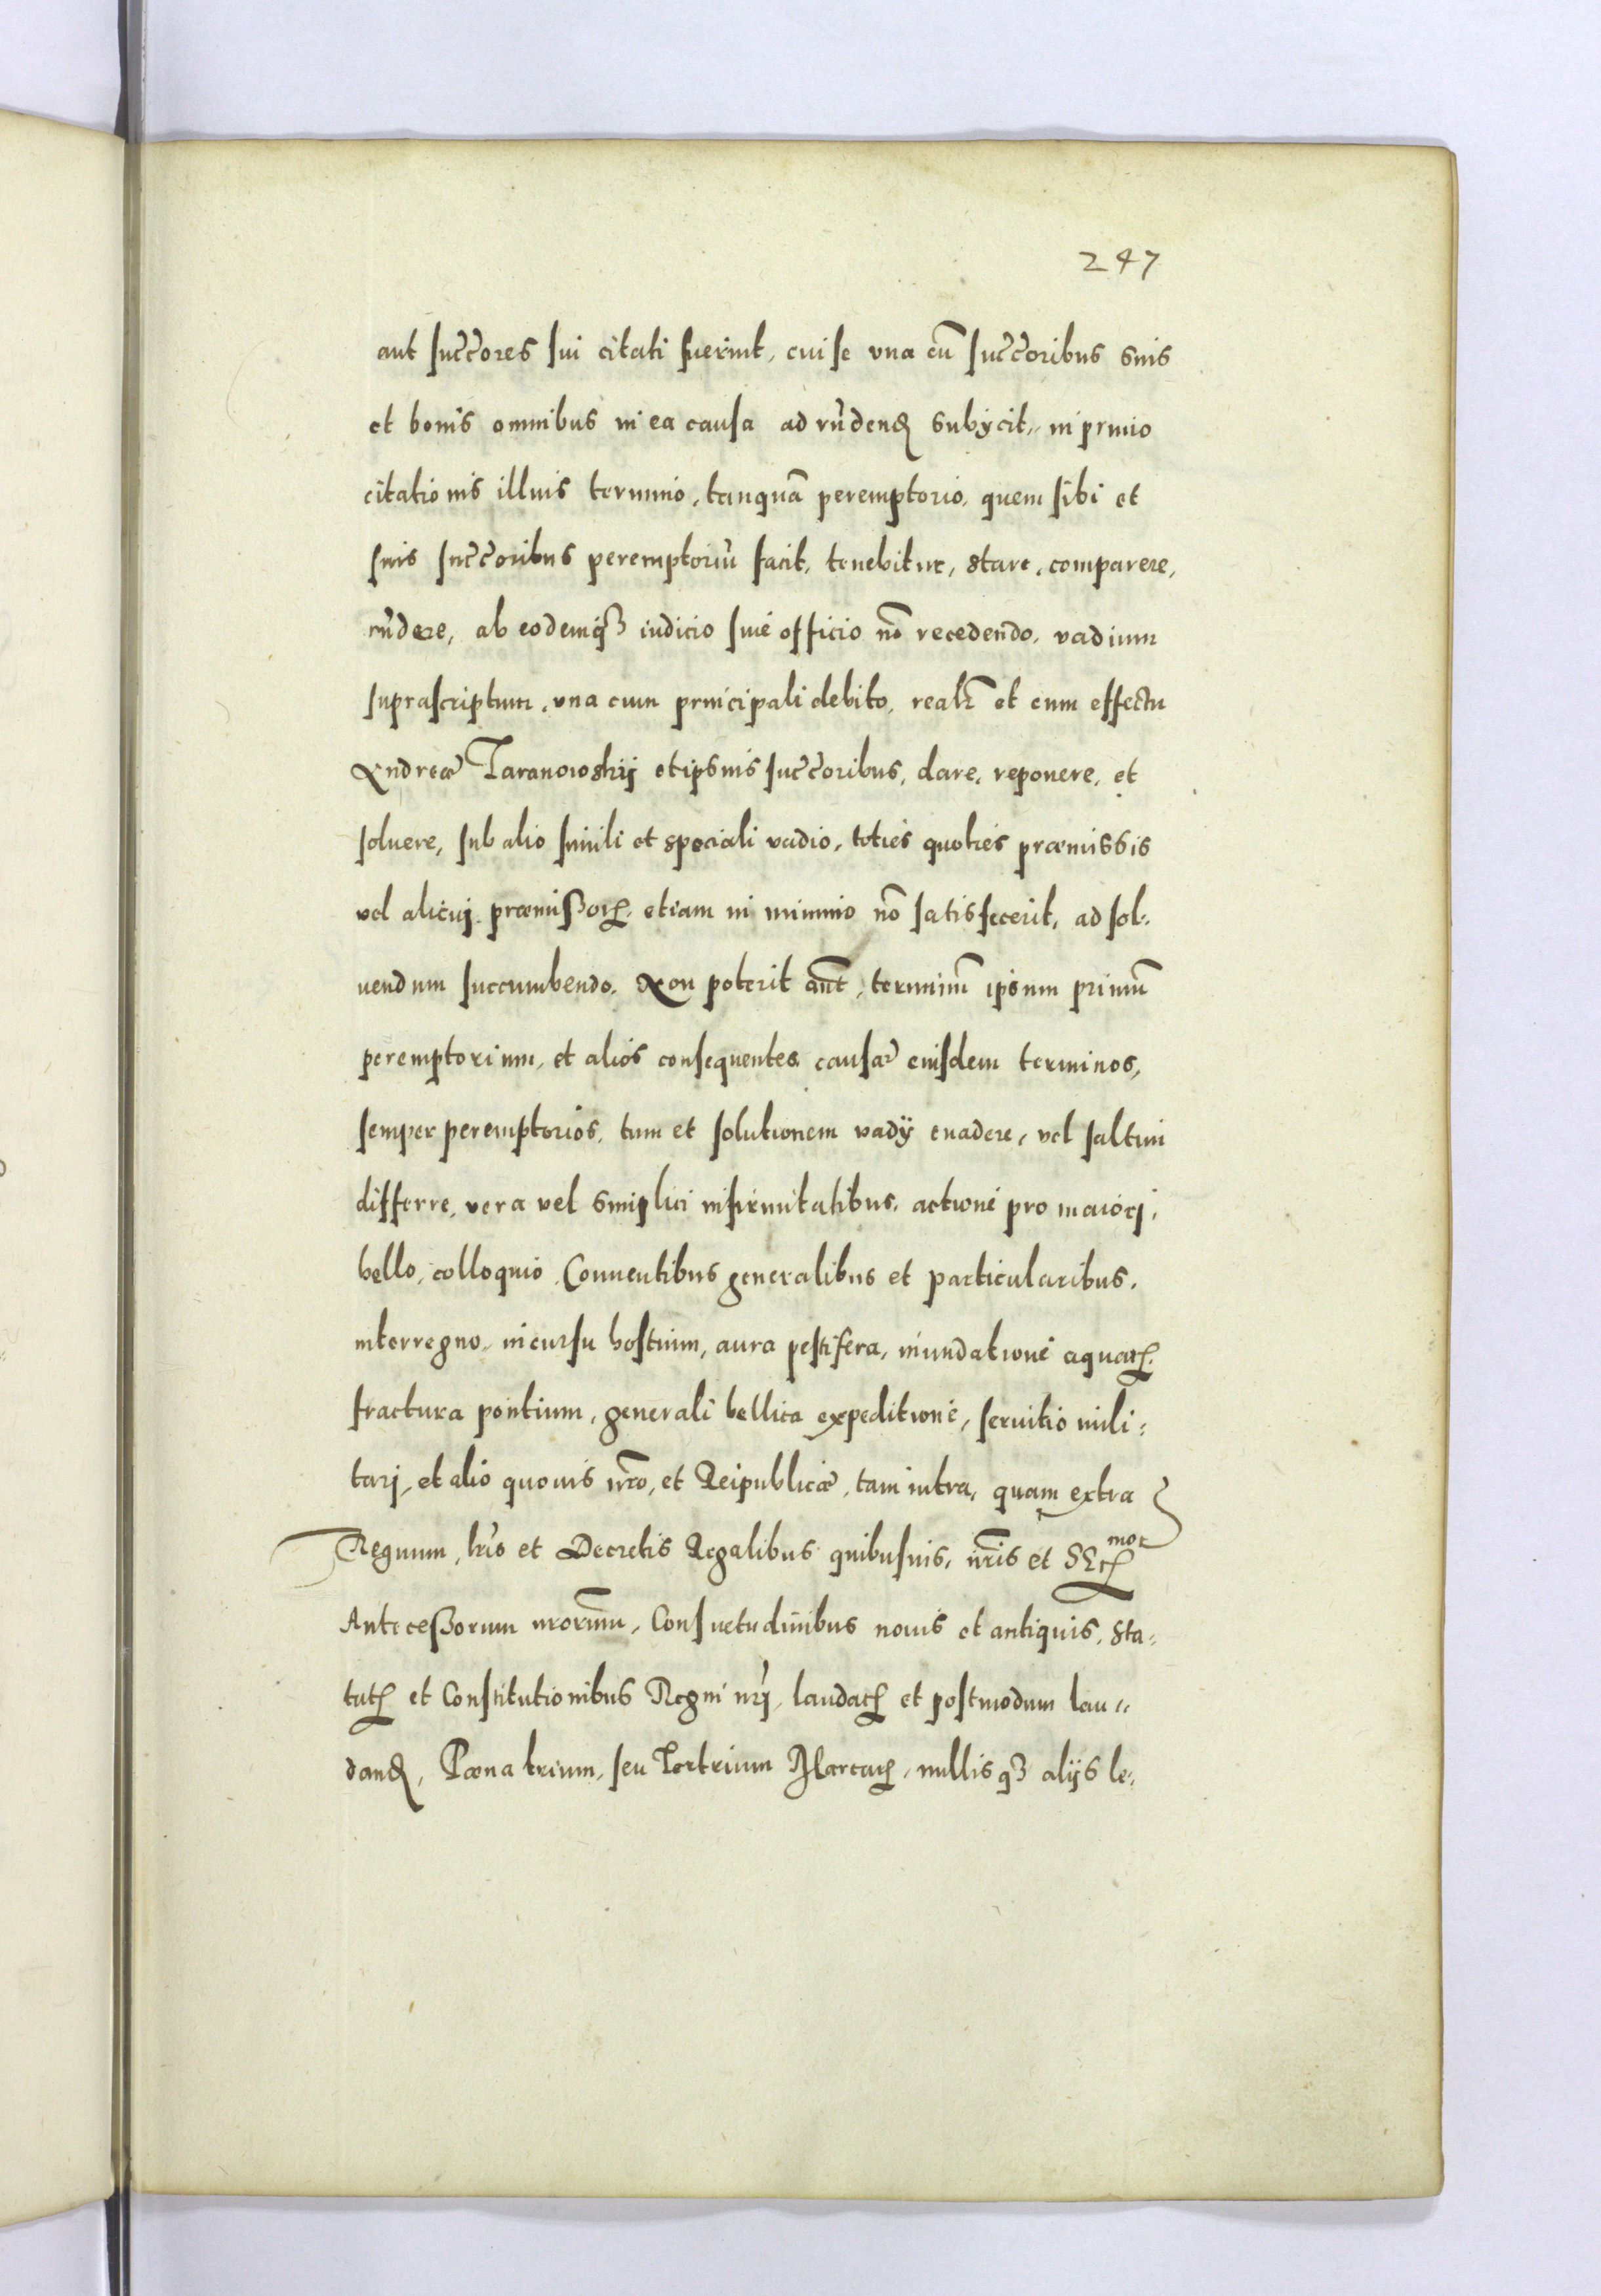 247
aut succ̃ores sui citati fuerint, cui se vna cũ succ̃oribus suis
et bonis omnibus in ea causa ad rñdend subÿcit, in primo
citationis illius termino, tanquã peremptorio, quem sibi et
suis succ̃oribus peremptoriũ facit, tenebitur, stare, comparere,
rñdere, ab eodemq iudicio siue officio nõ recedendo, vadium
suprascriptum, vna cum principali debito, realr̃ et cum effectu
Andreæ Taranowskij et ipsius succ̃oribus, dare, reponere, et
soluere, sub alio simili et speciali vadio, toties quoties præmissis
vel alicuj præmißor, etiam in minimo nõ satisfecerit, ad sol-
uendum succumbendo. Non poterit aũt, terminũ ipsum primũ
peremptorium, et alios consequentes causæ eiusdem terminos,
semper peremptorios, tum et solutionem vadÿ euadere, vel saltim
differre, vera vel simplici infirmitatibus, actione pro maiorj,
bello, colloquio, Conuentibus generalibus et particularibus,
interregno, incursu hostium, aura pestifera, inundatione aquar,
fractura pontium, generali bellica expeditione, seruitio mili-
tarj, et alio quouis nr̃o, et Reipublicæ, tam intra, quam extra
Regnum, lr̃is et Decretis Regalibus quibusuis, nr̃is et SSr mor
Anteceßorum nrorum̃, Consuetudinibus nouis et antiquis, Sta-
tut et Constitutionibus Regni nr̃j, laudat et postmodum lau-
dand, Pœna trium, seu Ter trium Marcar, nullisq alijs le-